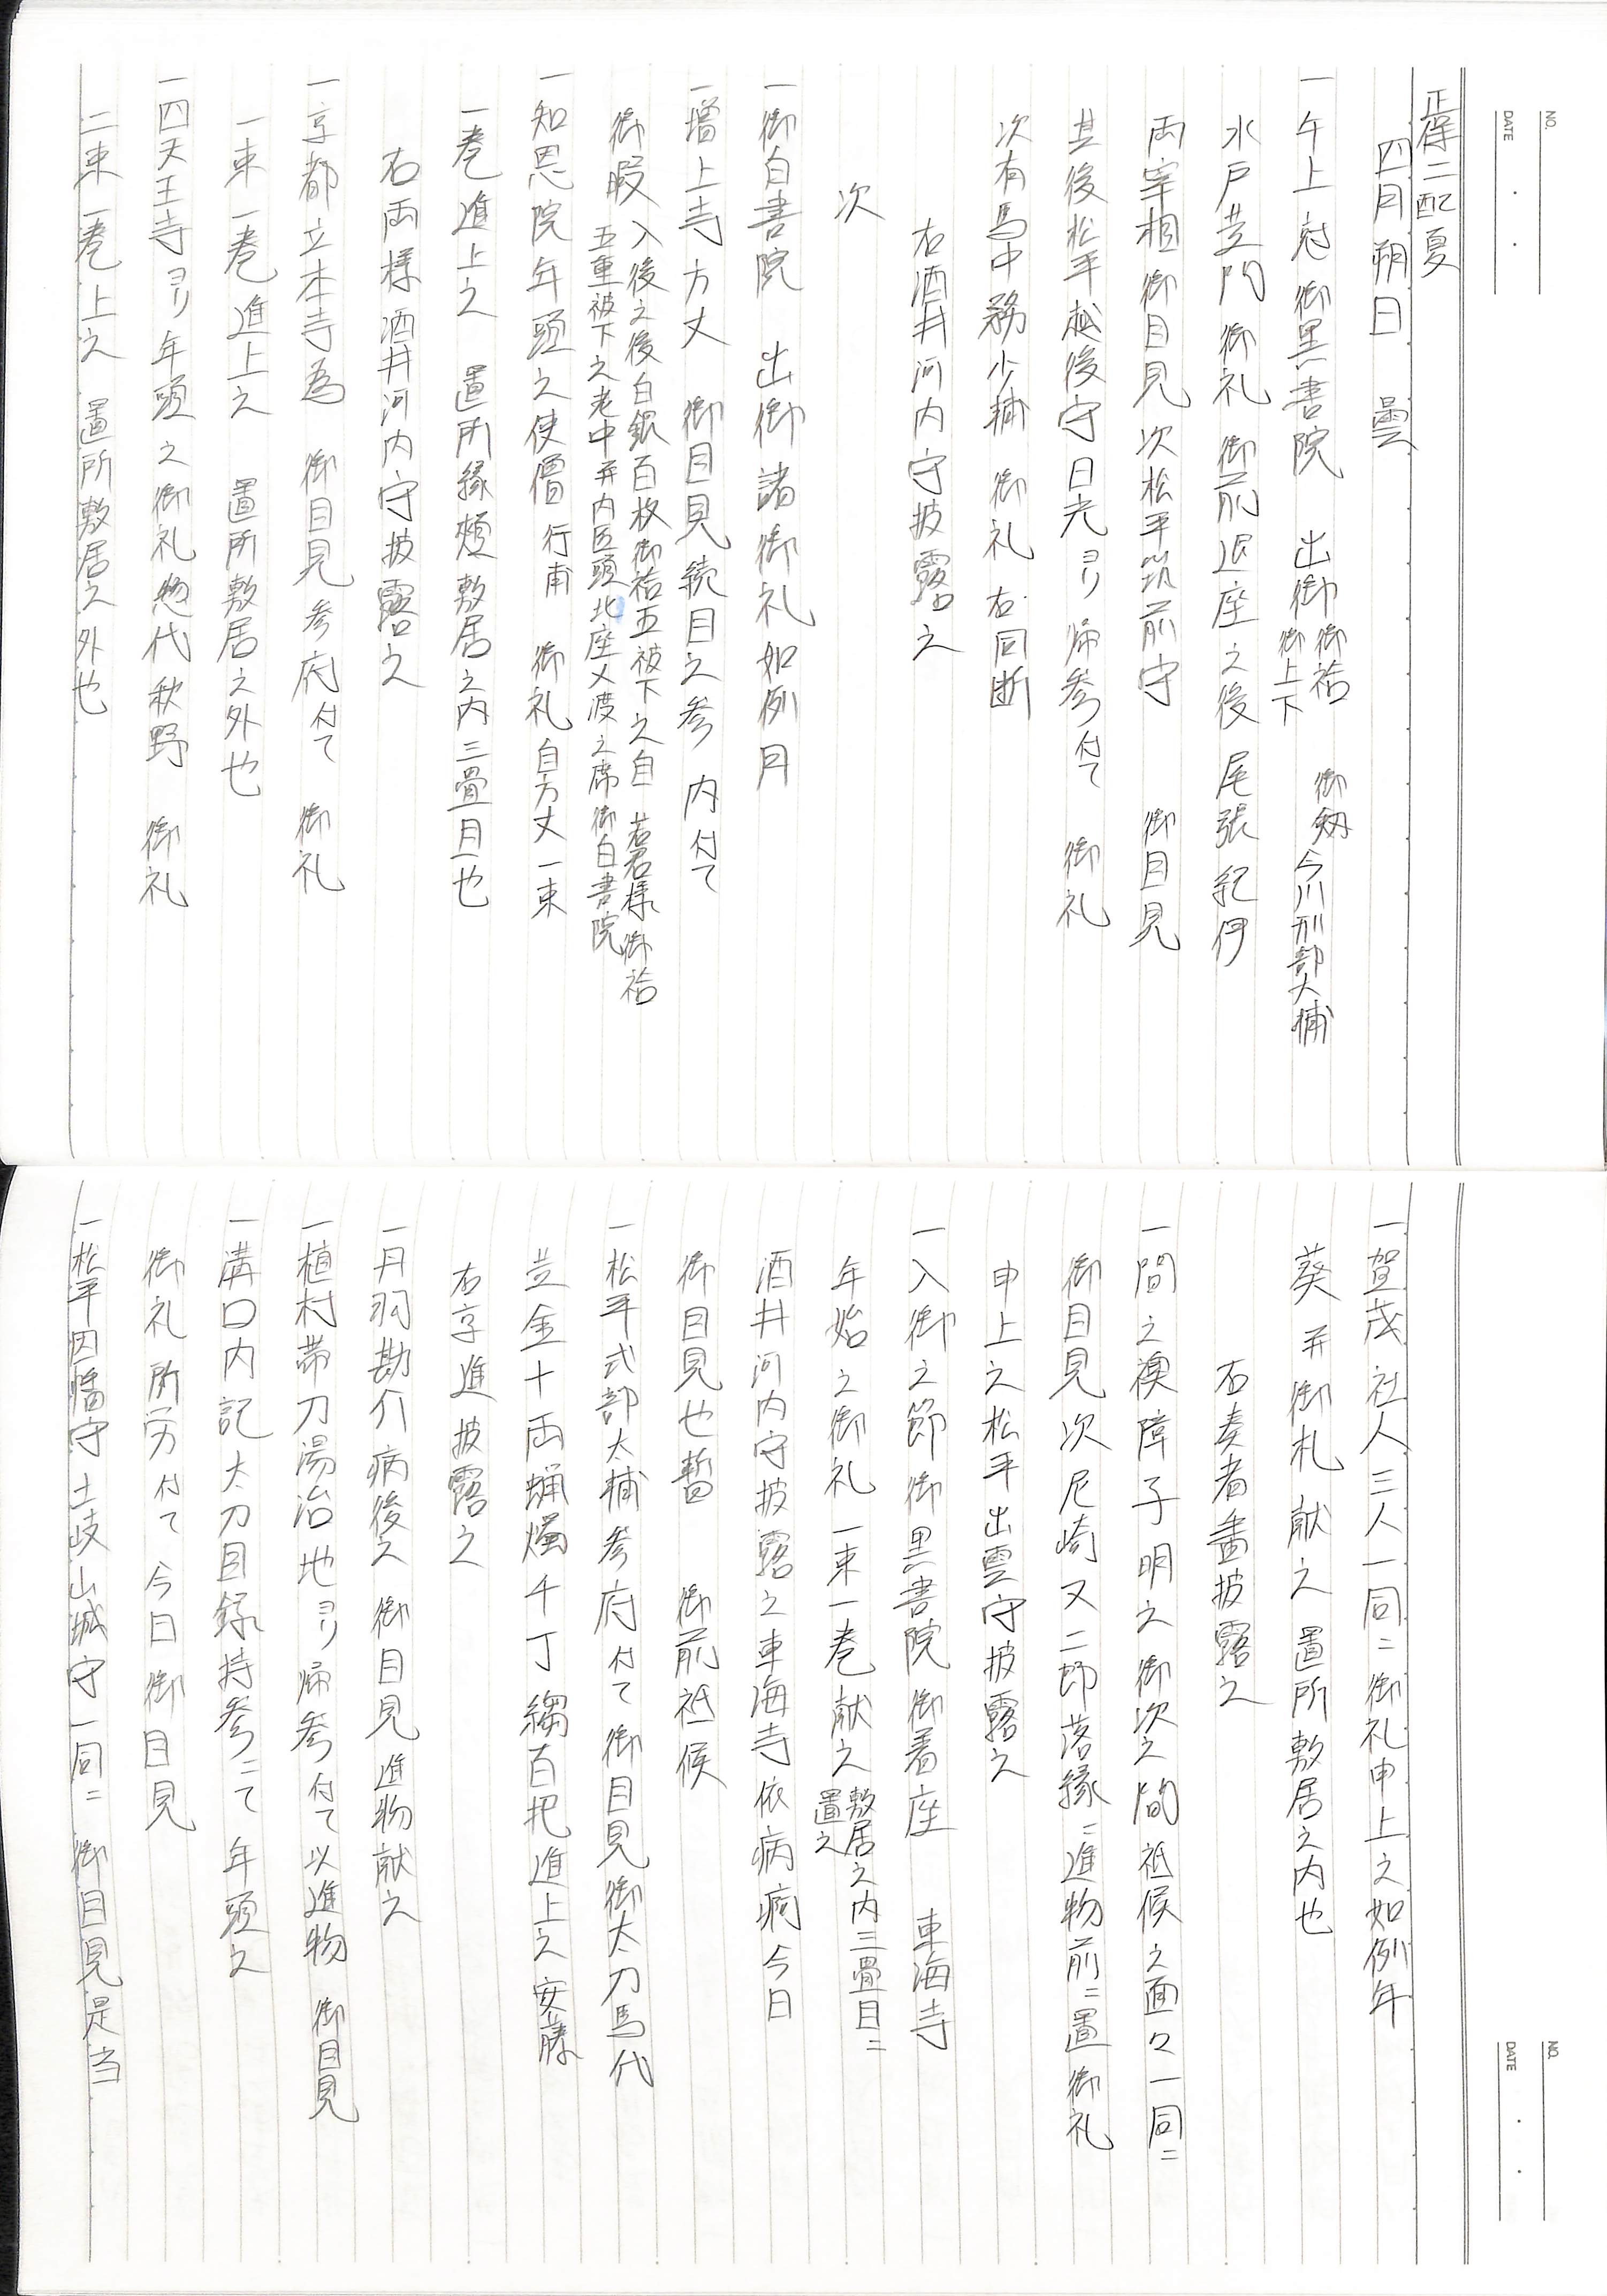 NO.
DATE
正徳二配夏
四月朔日 曇
一午上刻御黒書院 出御 御袷 御上下 御劔 今川刑部大輔
水戸黄門御礼 御前退座之後 尾張 紀伊
両宰相御目見 次松平筑前守 御目見
其後松平越後守日光ヨリ帰参付て 御礼
次有馬中務少輔 御礼 右同断
右酒井河内守披露之
次
一御白書院 出御諸御礼如例月
一増上寺方丈 御目見続目之参内付て
御暇 入後之後白銀百枚御袷五被下之自 若君様御袷
五重被下之老中并内匠頭北座〆渡之席御白書院
一知恩院年頭之使僧 行甫 御礼自方丈一束
一巻進上之 置所縁頬敷居之内三畳目也
右両様酒井河内守披露之
一京都立本寺為 御目見参府付て 御礼
一束一巻進上之 置所敷居之外也
一四天王寺ヨリ年頭之御礼惣代秋野 御礼
二束一巻上之 置所敷居之外也
NO.
DATE
一賀茂社人三人一同ニ御礼申上之如例年
葵并御札献之置所敷居之内也
右奏者番披露之
一間之襖障子明之御次之間祗候之面々一同ニ
御目見次尼崎又二郎落縁ニ進物前ニ置御礼
申上之松平出雲守披露之
一入御之節御黒書院御着座 東海寺
年始之御礼一束一巻献之 敷居之内三畳目ニ
置之
酒井河内守披露之東海寺依病痾今日
御目見也暫 御前祗候
一松平式部大輔参府付て御目見御太刀馬代
黄金十両蝋燭千丁綿百把進上之安藤
右京進披露之
一丹羽勘介病後之御目見進物献之
一植村帯刀湯治地ヨリ帰参付て以進物 御目見
一溝口内記太刀目録持参ニて年頭之
御礼所労付て今日御目見
一松平因幡守土岐山城守一同ニ 御目見是当